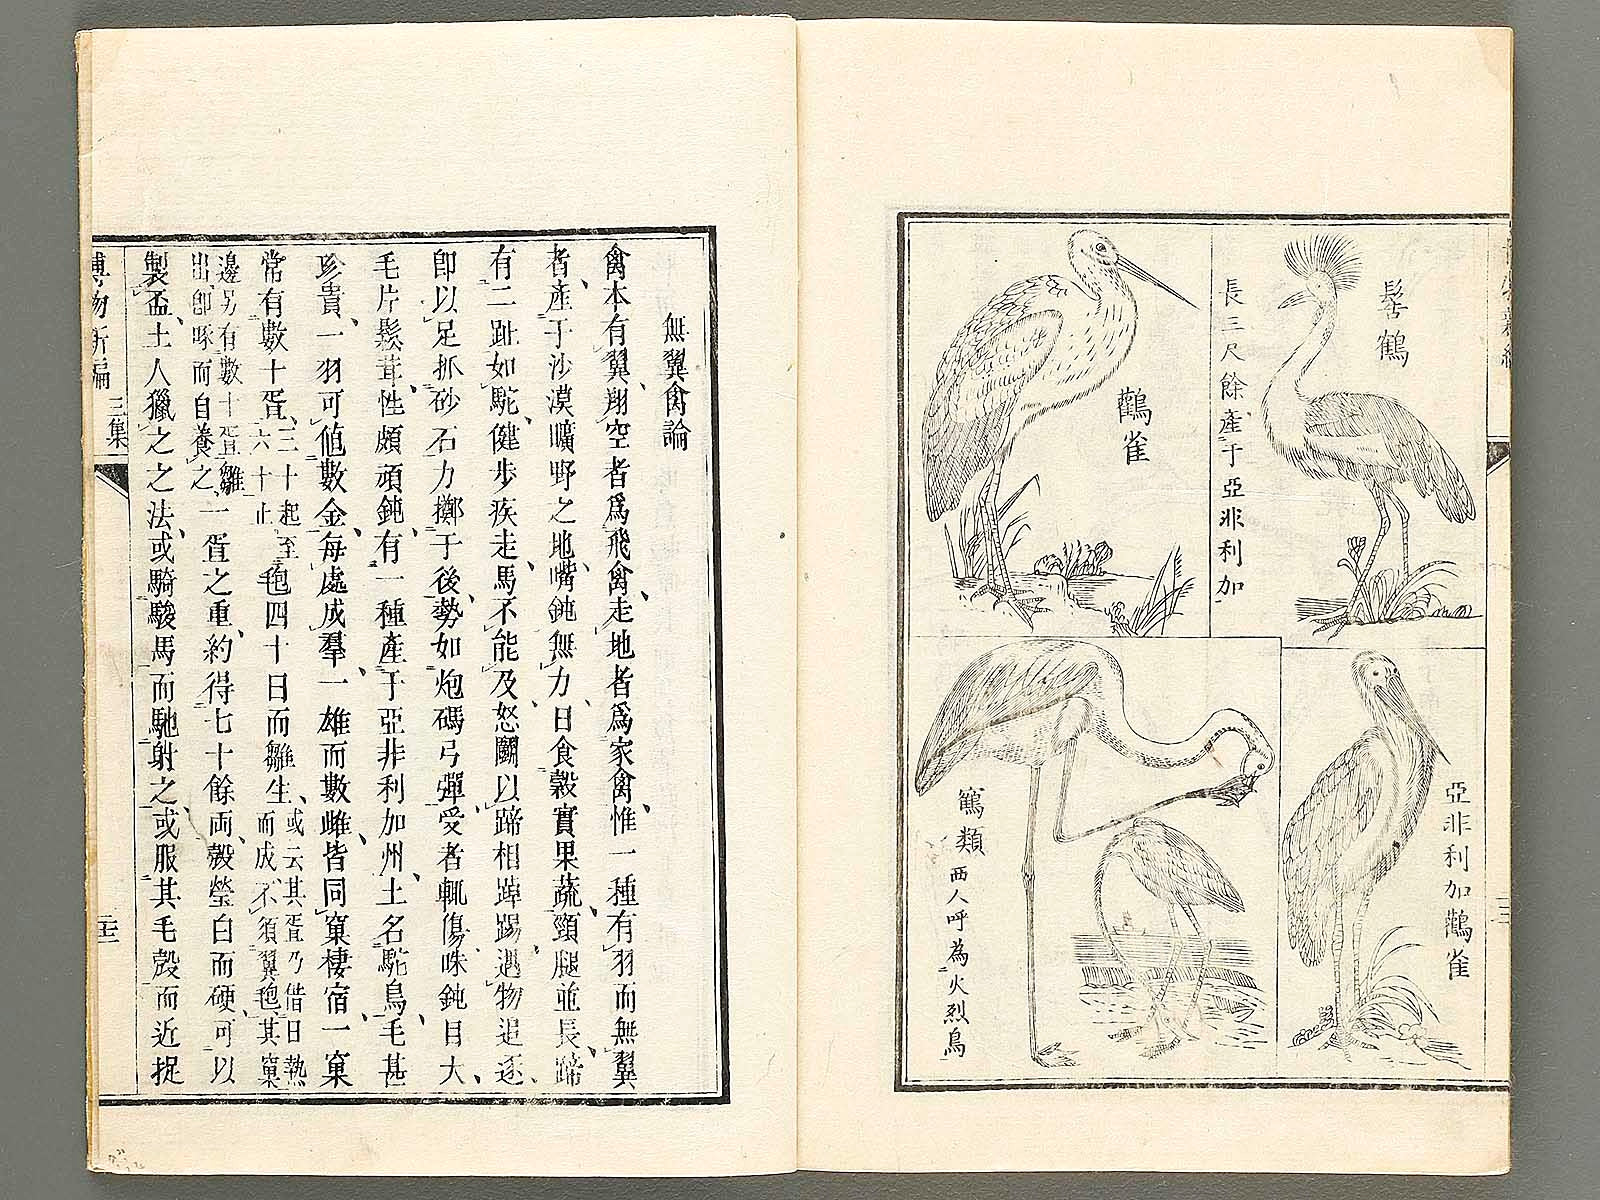 髻鶴
長三尺餘產于亞非利加
鸛雀
亞非利加鸛雀
鶴類
西人呼為火烈鳥
無翼禽論
禽本有翼翔空者爲飛禽走地者爲家禽惟一種有羽而無翼
者產于沙漠曠野之地嘴鈍無力日食穀實果蔬頸腿並長蹄
有二趾如駝健步疾走馬不能及怒鬭以蹄相踔踢遇物追逐
卽以足抓砂石力擲于後勢如炮碼弓彈受者輒傷咮鈍目大
毛片鬆茸性頗頑鈍有一種產于亞非利加州土名駝鳥毛甚
珍貴一羽可值數金每處成羣一雄而數雌皆同窠棲宿一窠
常有數十蛋三十起至六十止毢四十日而雛生或云其蛋乃借日熱而成不須翼毢其窠
邊另有數十蛋雛出卽啄而自養之一蛋之重約得七十餘両殼瑩白而硬可以
製盃土人獵之之法或騎駿馬而馳射之或服其毛殼而近捉
博物新編
三集